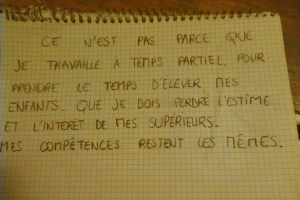 CE N'EST PAS PARCE QUE
JE TRAVAILLE A TEMPS PARTIEL, POUR
PRENDRE LE TEMPS D'ELEVER MES
ENFANTS. QUE JE DOIS PERDRE L'ESTIME
ET L'INTERET DE MES SUPERIEURS.
MES COMPÉTENCES RESTENT LES MÊMES.